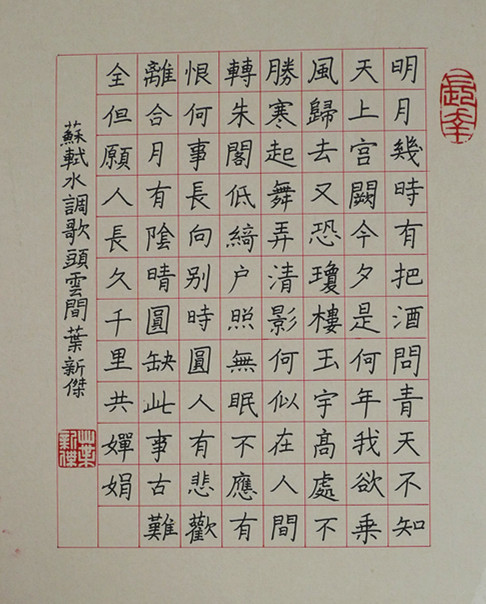 明月幾時有把酒問青天不知
天上宫闕今夕是何年我欲乘
風歸去又恐瓊樓玉宇髙處不
勝寒起舞弄清影何似在人間
轉朱閣低綺户照無眠不應有
恨何事長向别時圓人有悲歡
離合月有陰晴圓缺此事古難
全但願人長久千里共嬋娟
蘇軾水調歌頭雲間葉新傑
葉新傑